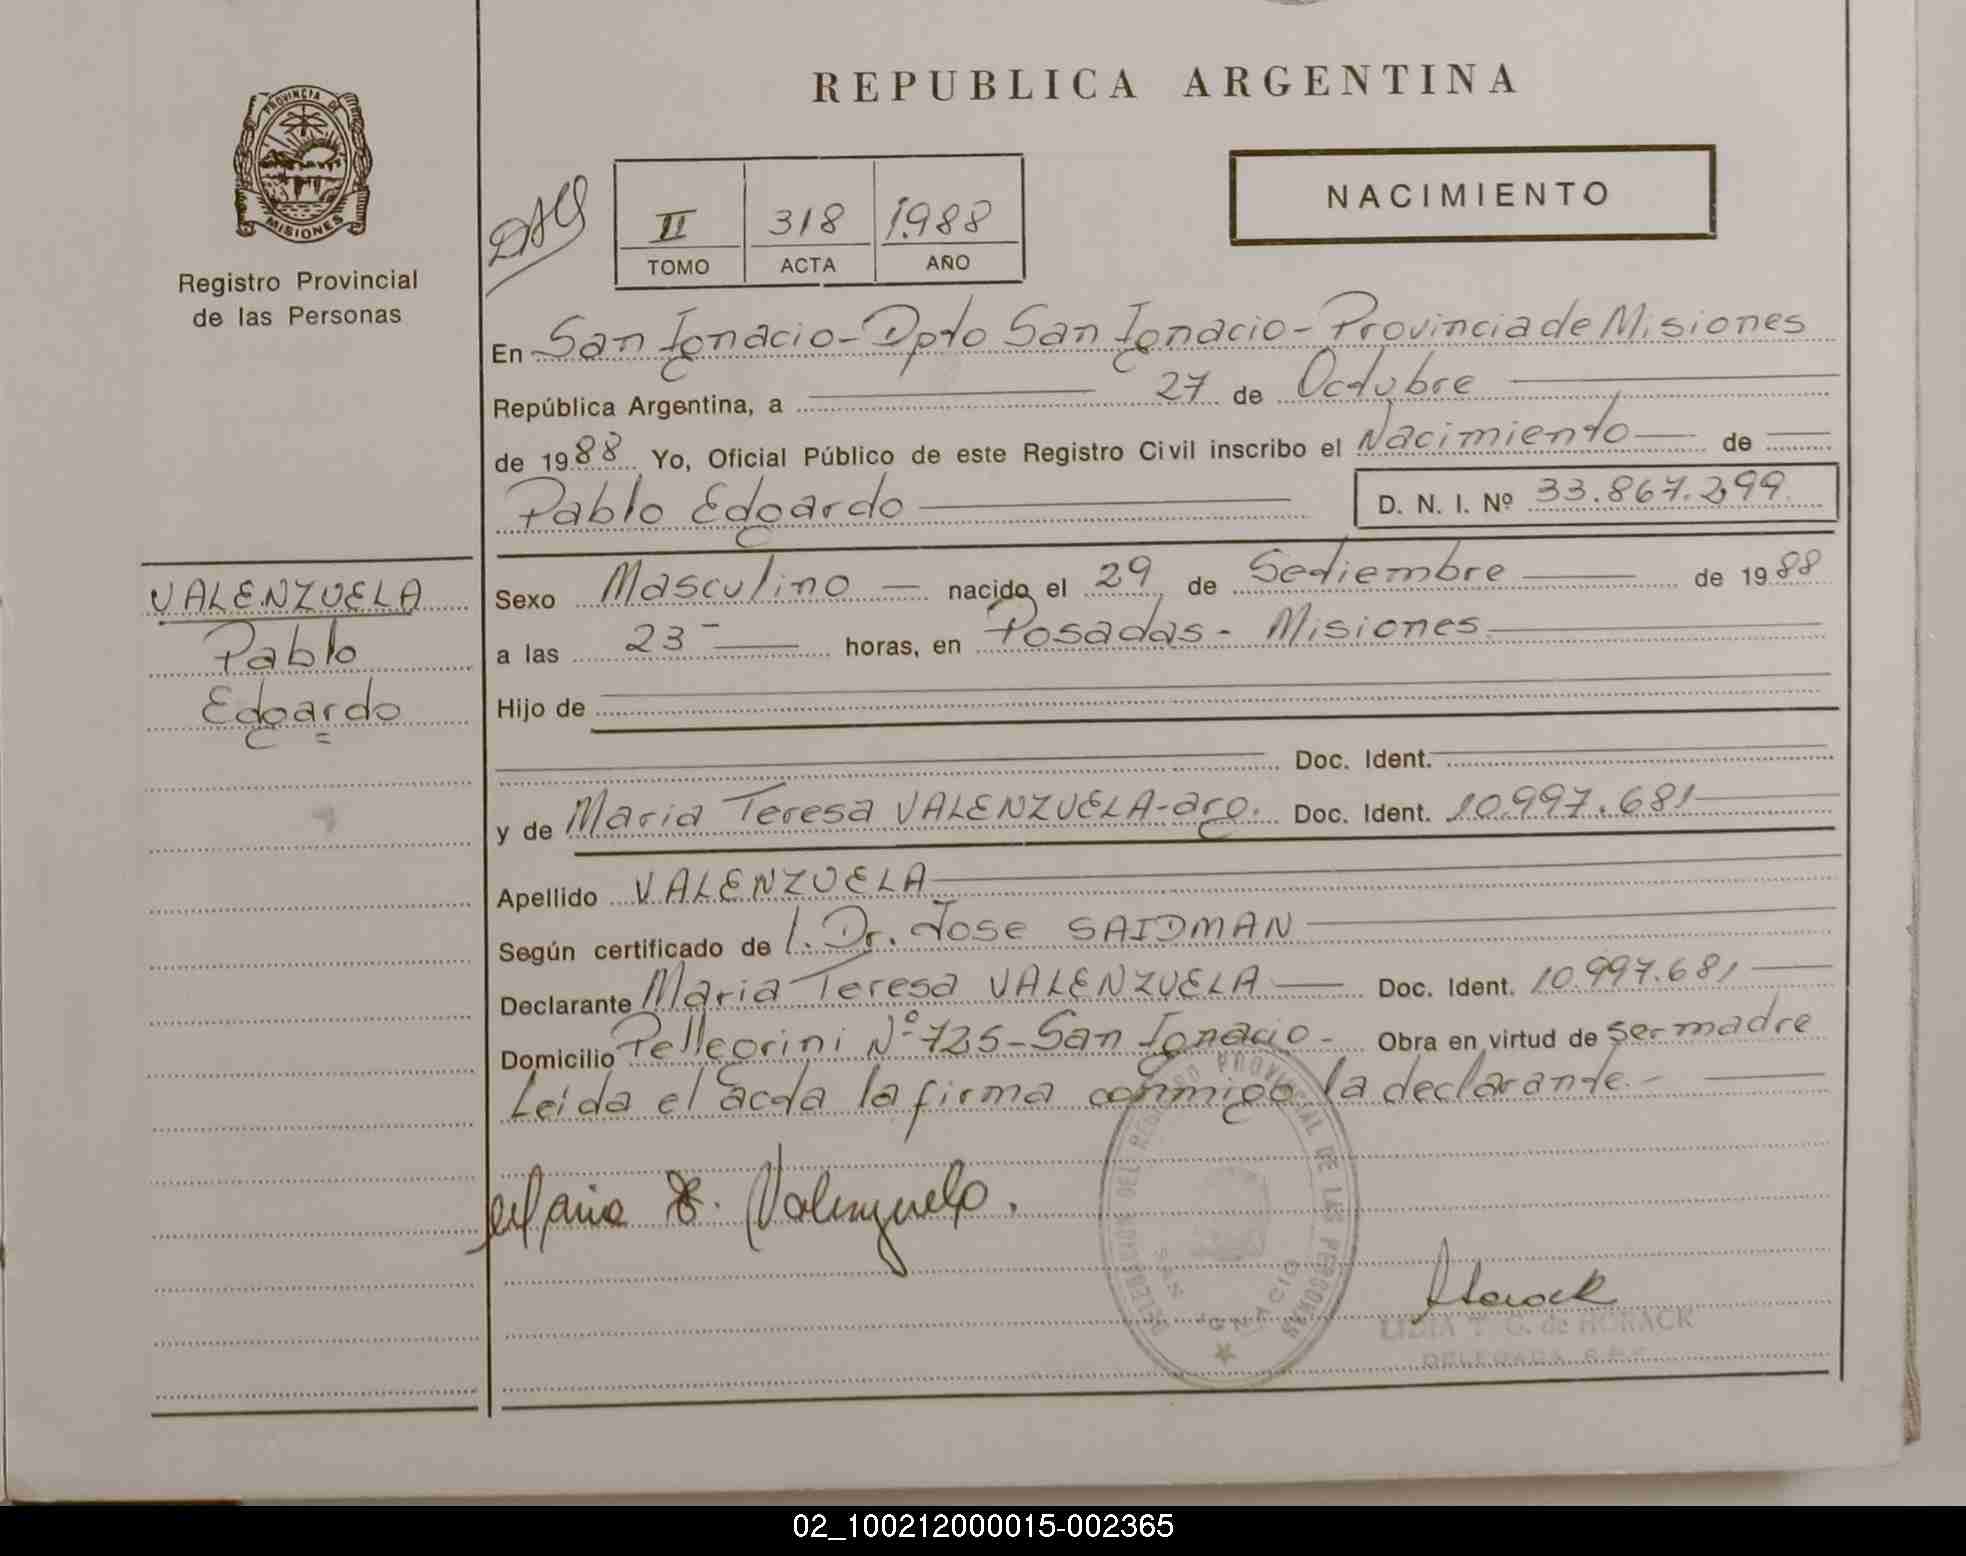 REPUBLICA ARGENTINA
PROVINCIA DE MISIONES
Registro Provincial
de las Personas
II 318 1988
TOMO ACTA AÑO
NACIMIENTO
En San Ignacio - Dpto San Ignacio - Provincia de Misiones
República Argentina, a 27 de Octubre
de 1988 Yo, Oficial Público de este Registro Civil inscribo el Nacimiento de
Pablo Edgardo D. N. I. Nº 33.867.299
VALENZUELA
Pablo
Edgardo
Sexo Masculino nacido el 29 de Setiembre de 1988
a las 23 horas, en Posadas - Misiones
Hijo de
Doc. Ident.
y de Maria Teresa VALENZUELA - arg. Doc. Ident. 10.997.681
Apellido VALENZUELA
Según certificado de l. Dr. Jose SAIDMAN
Declarante Maria Teresa VALENZUELA Doc. Ident. 10.997.681
Domicilio Pellegrini Nº 725 - San Ignacio - Obra en virtud de ser madre
Leída el acta la firma conmigo la declarante. -
Maria T. Valenzuela.
DELEGACION DEL REGISTRO PROVINCIAL DE LAS PERSONAS
SAN IGNACIO
Horack
LIDIA T. G. de HORACK
DELEGADA
02_100212000015-002365